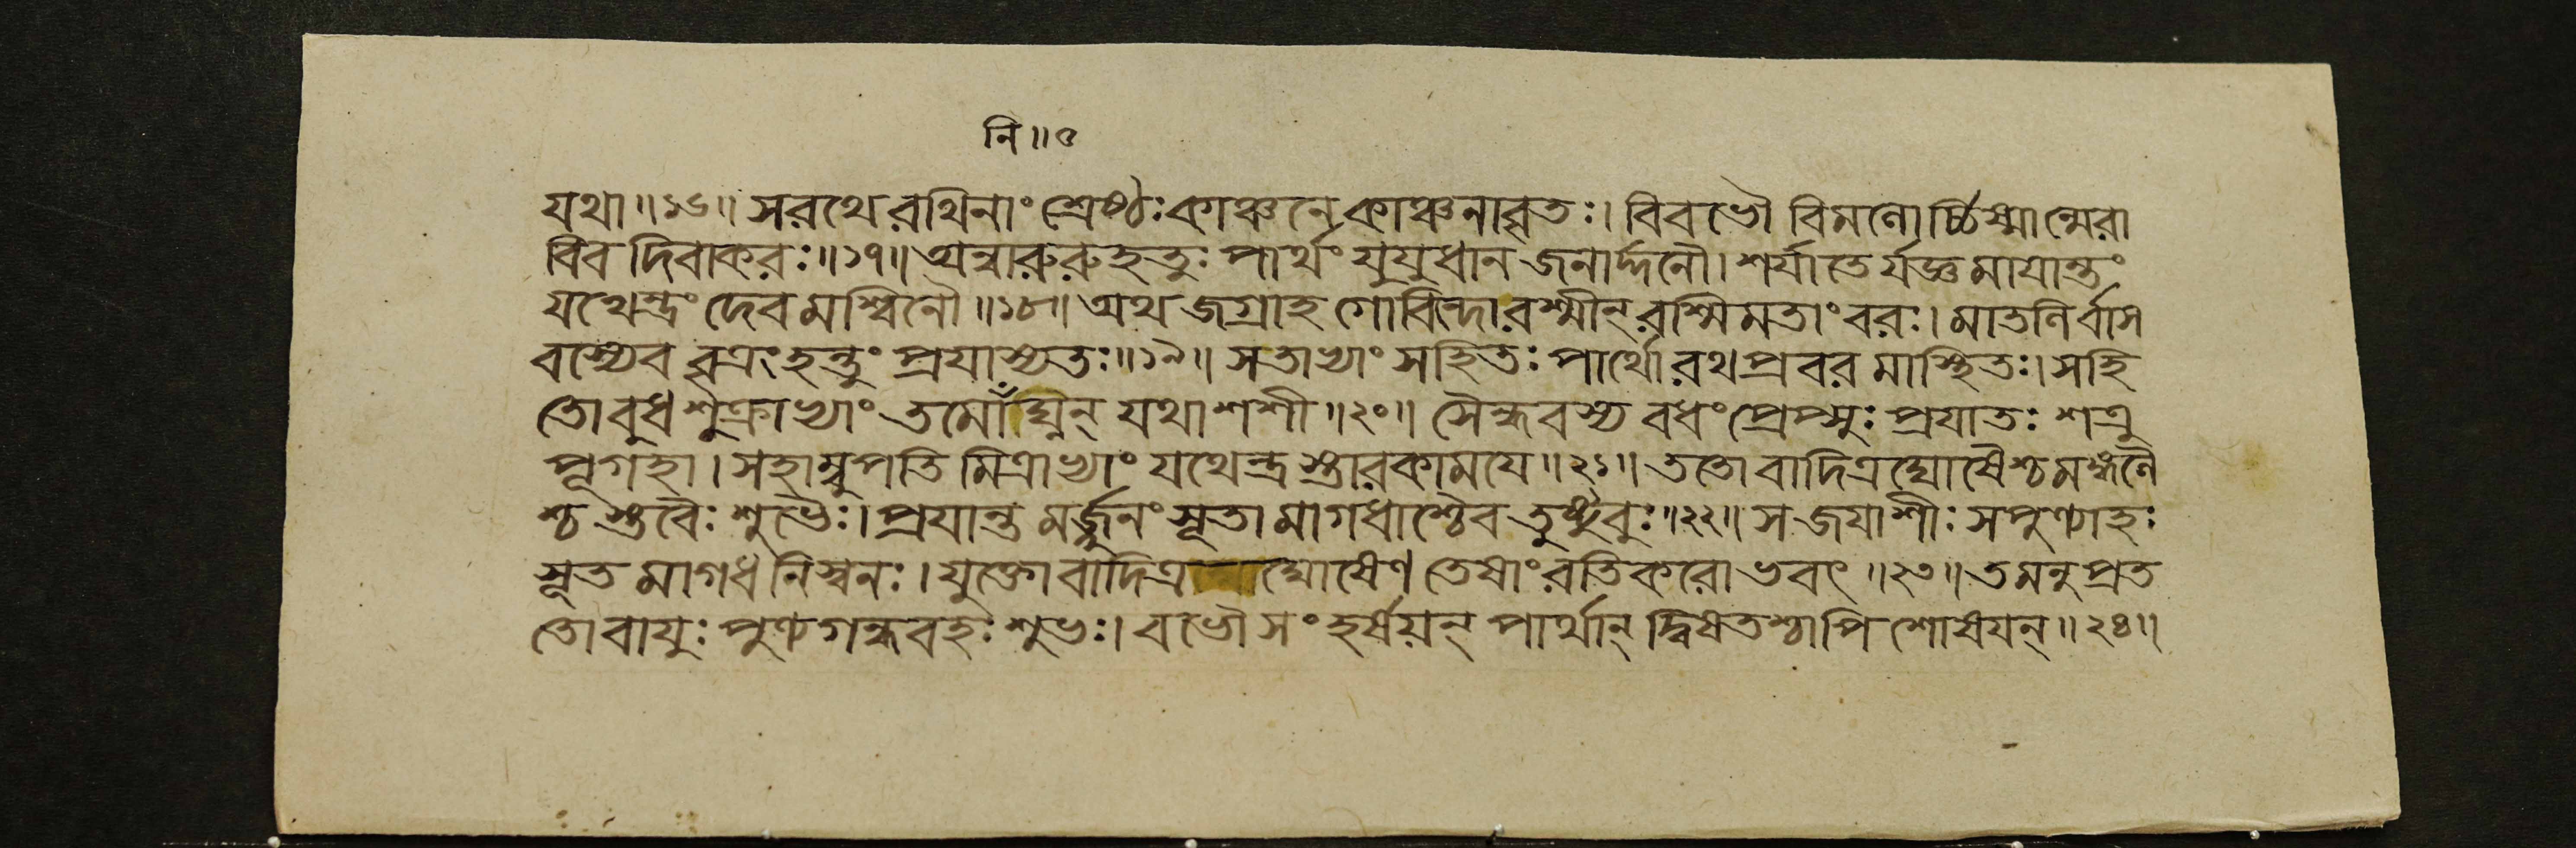 নি॥৫
যথা॥১৬॥সরথেরথিনাংশ্রেষ্ঠঃকাঞ্চনেকাঞ্চনাবৃতঃ।বিবভৌবিমণোর্চ্চিষ্মান্মেরা
বিবদিবাকরঃ॥১৭॥অন্বারুরুহতুঃপার্থংযুযুধানজনার্দ্দনৌ।শর্যাতের্যজ্ঞমাযান্তং
যথেন্দ্রংদেবমশ্বিনৌ॥১৮॥অথজগ্রাহগোবিন্দোরশ্মীন্রশ্মিমতাংবরঃ।মাতলির্বাস
বস্যেববৃত্রংহন্তুংপ্রযাস্যতঃ॥১৯॥সতাভ্যাংসহিতঃপার্থোরথপ্রবরমাস্থিতঃ।সহি
তোবুধশুক্রাভ্যাংতমোঁঘ্নন্যথাশশী॥২০॥সৈন্ধবস্যবধংপ্রেপ্সুঃপ্রযাতঃশত্রু
পূগহা।সহাম্বুপতিমিত্রাভ্যাংযথেন্দ্রস্তারকাময়ে॥২১॥ততোবাদিত্রঘোষৈশ্চমঙ্গলৈ
শ্চস্তবৈঃশুভৈঃ।প্রযান্তমর্জ্জুনংসূতামাগধাশ্চৈবতুষ্টুবুঃ॥২২॥সজযাশীঃসপুণ্যাহঃ
সূতমাগধনিস্বনঃ।যুক্তোবাদিত্রঘোষেণতেষাংরতিকরোভবৎ॥২৩॥তমনুপ্রত
তোবাযুঃপুণ্যগন্ধবহঃশুভঃ।ববৌসংহর্ষয়ন্পার্থান্দ্বিষতশ্চাপিশোষযন্॥২৪॥